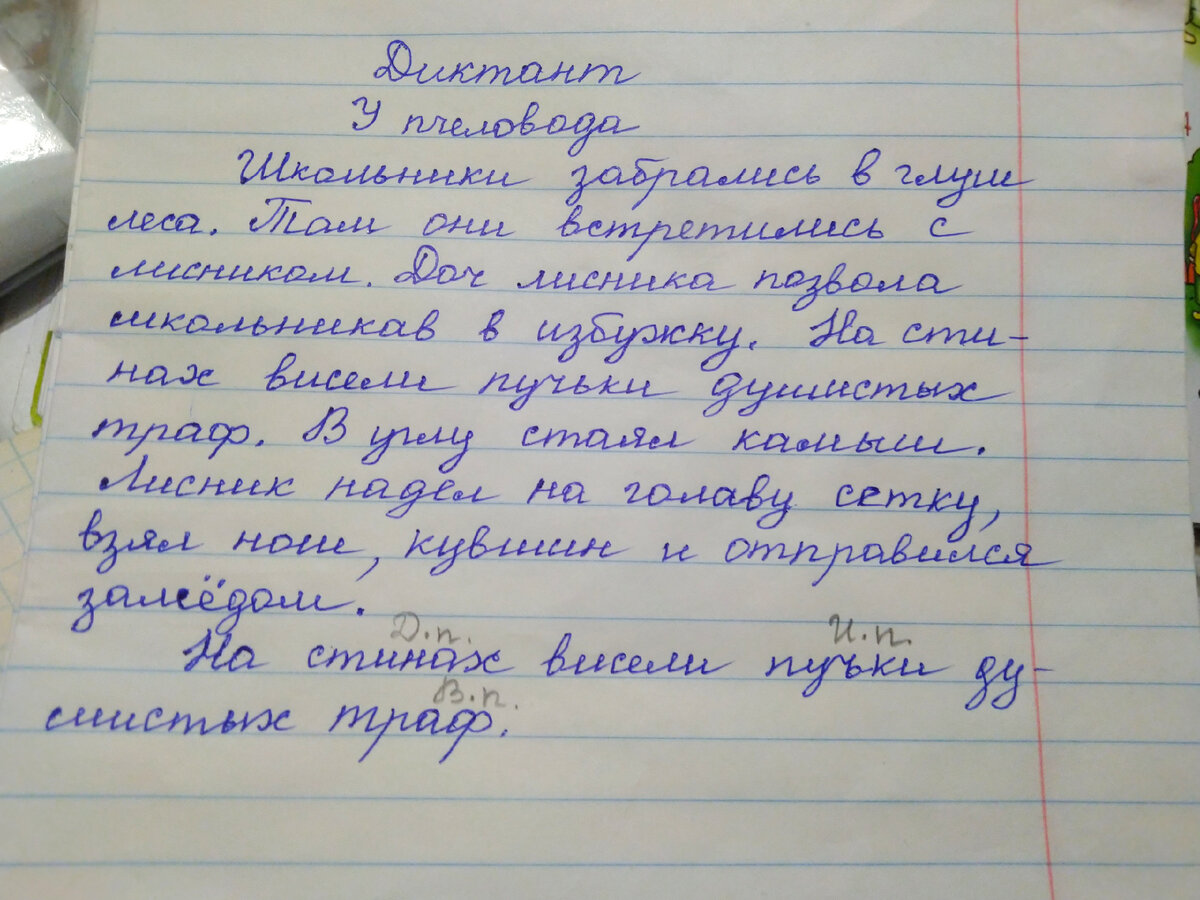 Диктант
У пчеловода
Школьники забрались в глуш
леса. Там они встретились с
лисником. Доч лисника позвола
школьникав в избужку. На сти-
нах висели пучьки душистых
траф. В углу стаял камыш.
Лисник надел на голаву сетку,
взял нош, кувшин и отправился
замёдом.
Д.п. И.п.
На стинах висели пучьки ду-
В.п.
шистых траф.